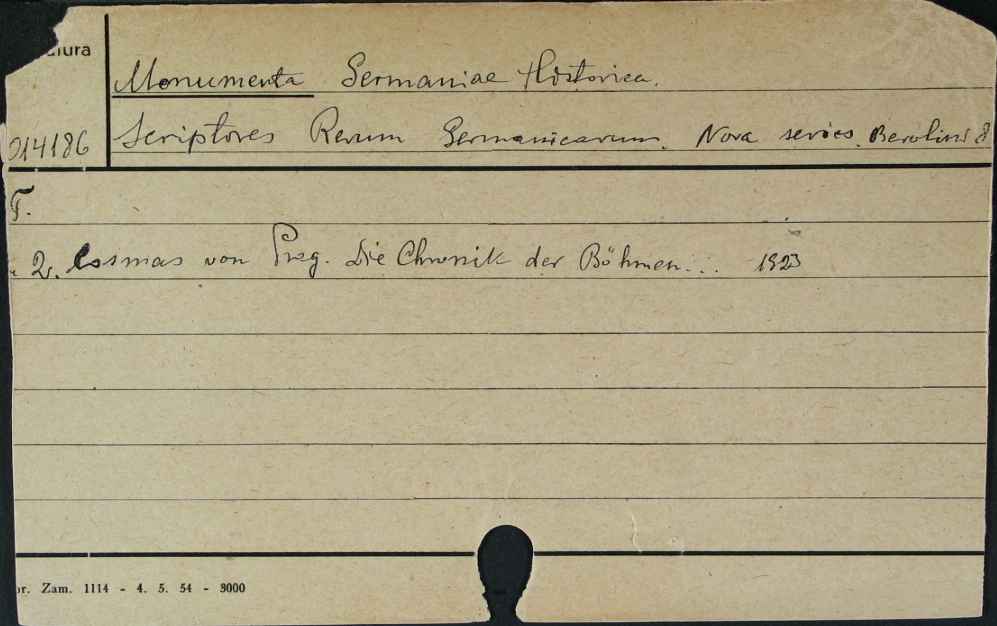 Monumenta Germaniae Historica.
014186 Scriptores Rerum Germanicarum. Nova series. Berolini 8
T.
2. Cosmas von Prag. Die Chronik der Böhmen... 1923
Zam. 1114 - 4. 5. 54 - 3000